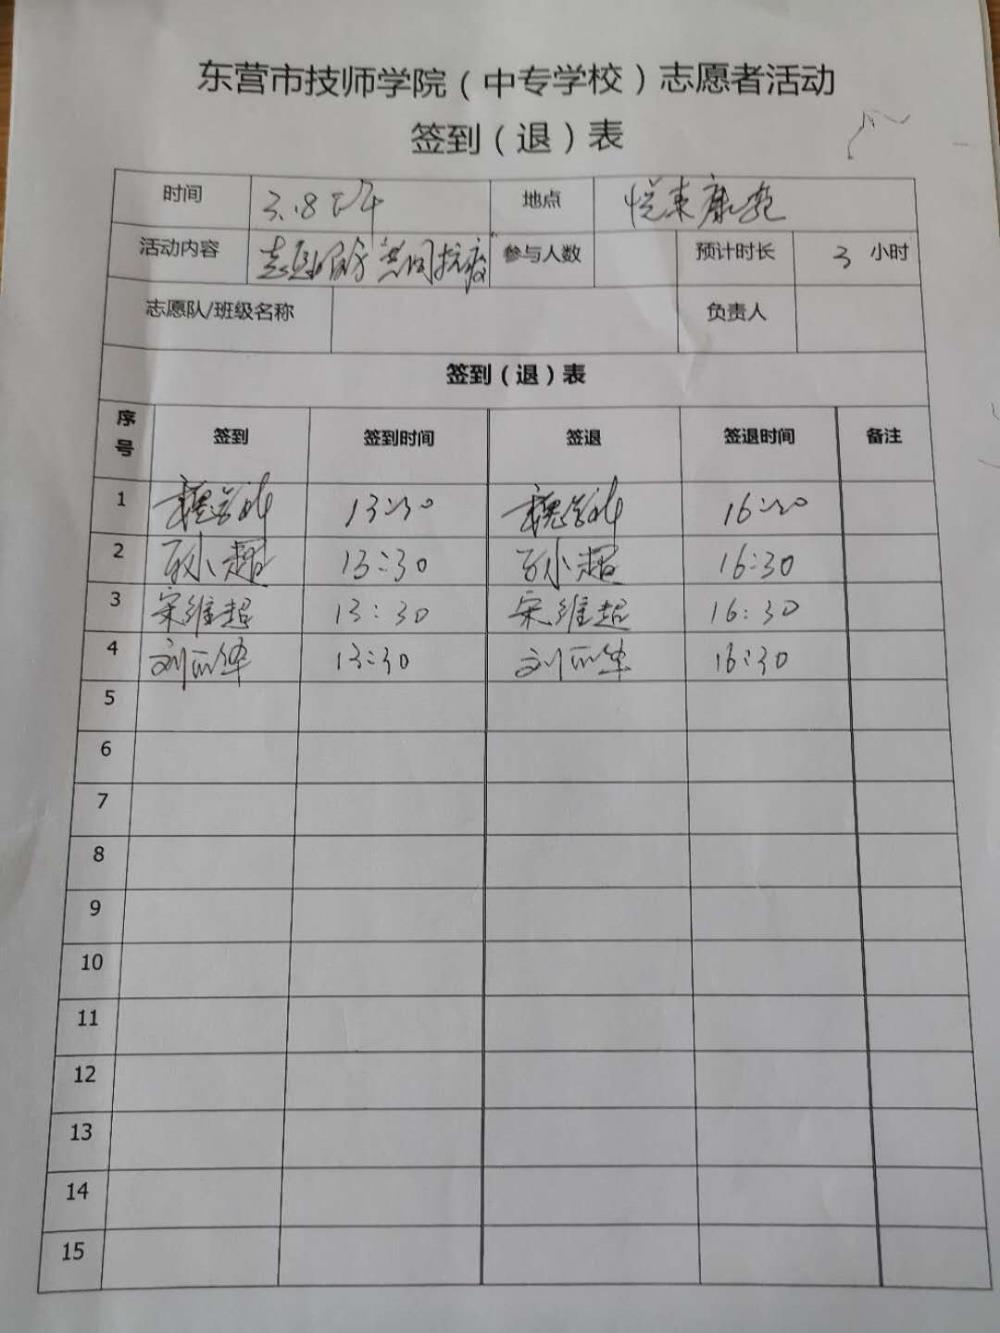 东营市技师学院（中专学校）志愿者活动
签到（退）表
时间 3.8下午 地点 悦来康苑
活动内容 志愿服务 共同抗疫 参与人数 预计时长 3 小时
志愿队/班级名称 负责人
签到（退）表
序号 签到 签到时间 签退 签退时间 备注
1 13:30 16:30
2 孙小超 13:30 孙小超 16:30
3 宋维超 13:30 宋维超 16:30
4 13:30 16:30
5
6
7
8
9
10
11
12
13
14
15